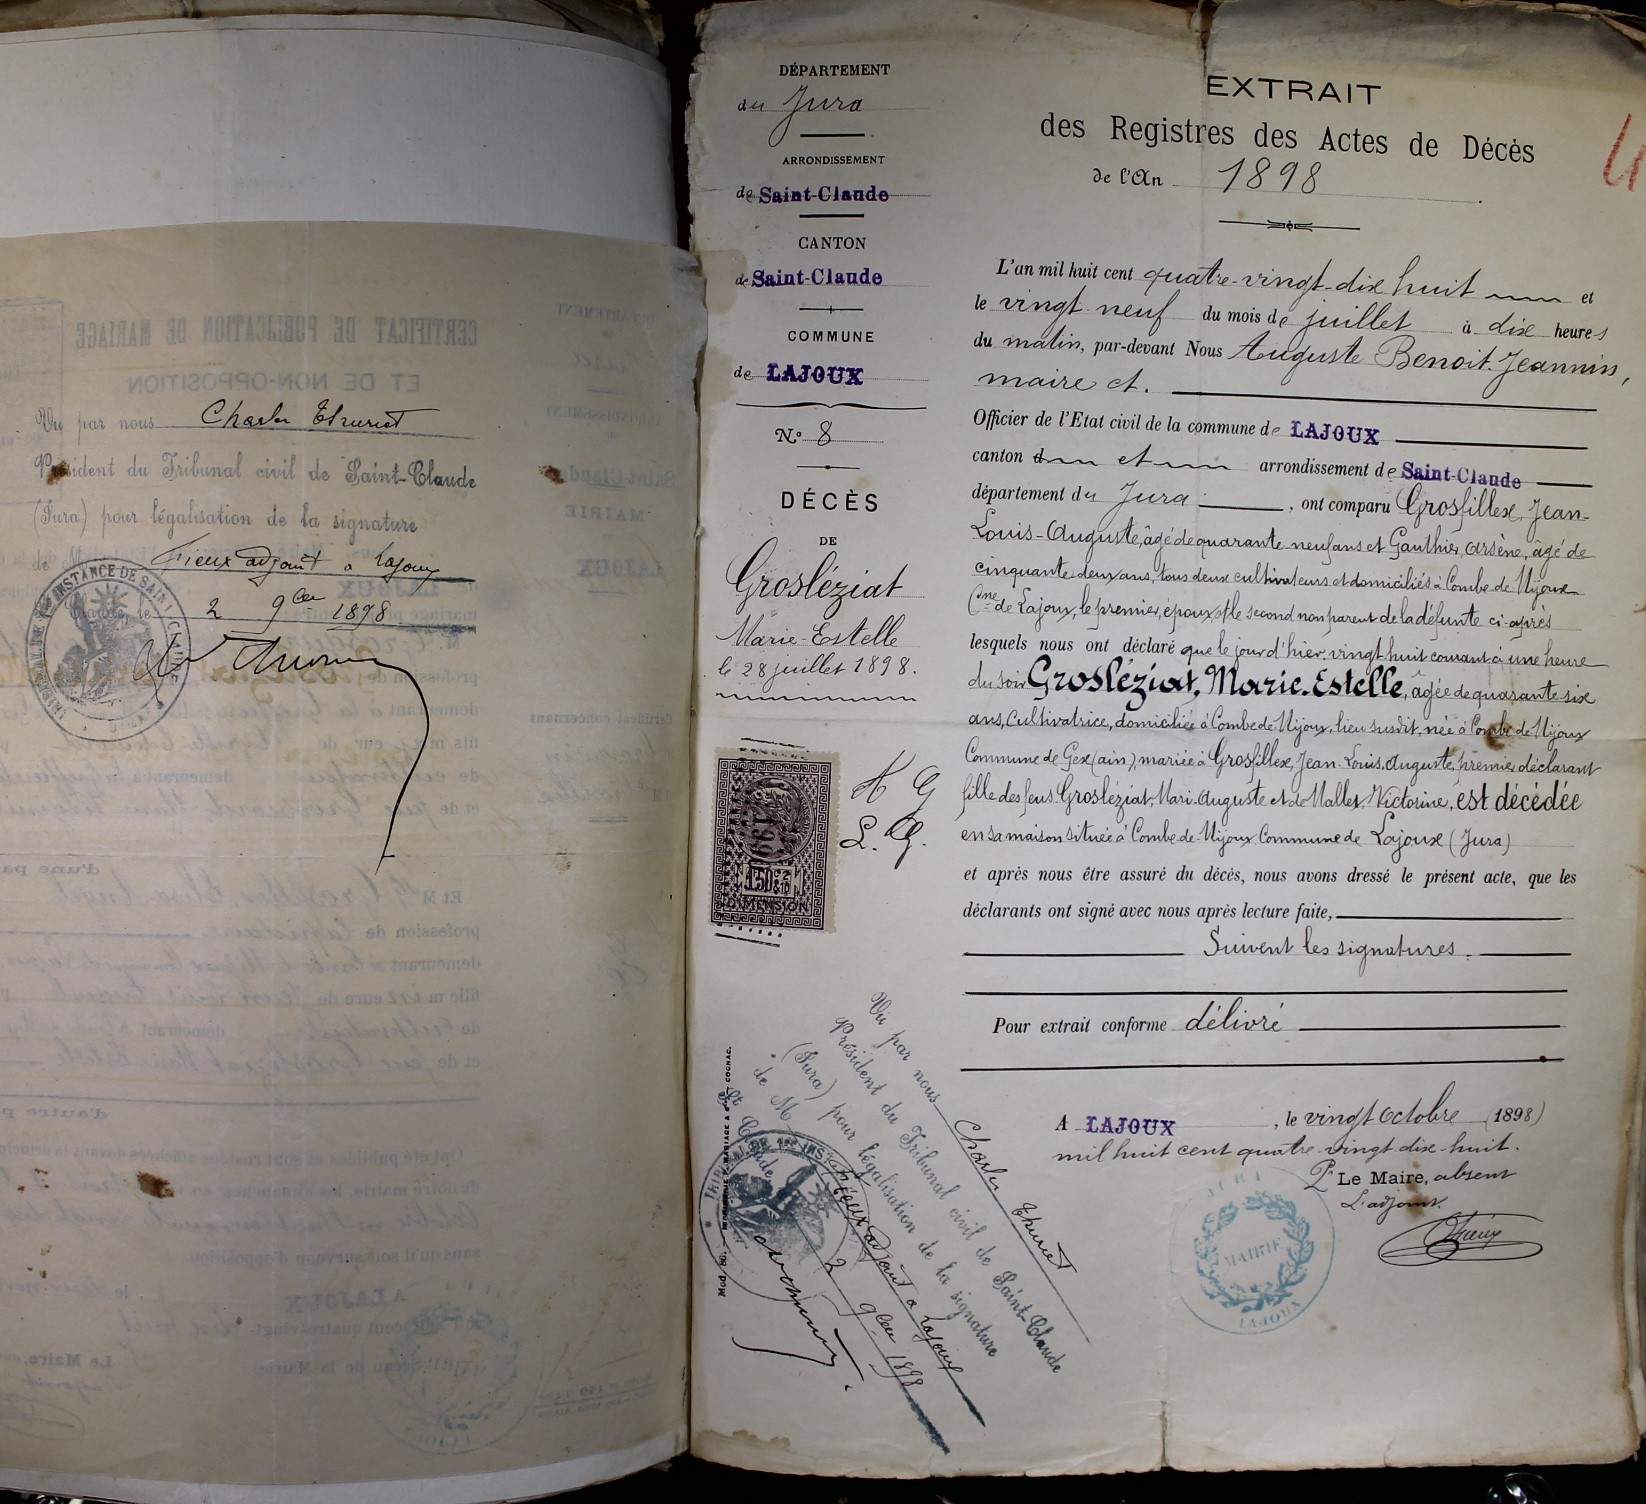 Vu par nous Charles Thuriet
Président du Tribunal civil de Saint-Claude
(Jura) pour légalisation de la signature
de M Fieux adjoint à Lajoux
2 9bre 1898
TRIBUNAL DE 1re INSTANCE DE SAINT-CLAUDE
DÉPARTEMENT
du Jura
ARRONDISSEMENT
de Saint-Claude
CANTON
de Saint-Claude
COMMUNE
de LAJOUX
No. 8
DÉCÈS
DE
Grosléziat
Marie-Estelle
le 28 juillet 1898.
EXTRAIT
des Registres des Actes de Décès
de l'An 1898
L'an mil huit cent quatre-vingt-dix huit et
le vingt neuf du mois de juillet à dix heures
du matin, par-devant Nous Auguste Benoit Jeannin,
maire et.
Officier de l'Etat civil de la commune de LAJOUX
canton d et arrondissement de Saint-Claude
département du Jura, ont comparu Grosfillex, Jean-
Louis-Auguste, âgé de quarante-neuf ans et Gauthier, Arsène, âgé de
cinquante deux ans, tous deux cultivateurs et domiciliés à Combe de Mijoux
Cne de Lajoux, le premier, époux, et le second non parent de la défunte ci-après
lesquels nous ont déclaré que le jour d'hier, vingt-huit courant à une heure
du soir Grosléziat, Marie-Estelle, âgée de quarante six
ans, Cultivatrice, domiciliée à Combe de Mijoux, lieu susdit, née à Combe de Mijoux
Commune de Gex (ain), mariée à Grosfillex, Jean-Louis, Auguste, premier déclarant
fille des feus Grosléziat, Mari-Auguste et de Mallet, Victorine, est décédée
en sa maison située à Combe-de-Mijoux Commune de Lajoux (Jura)
et après nous être assuré du décès, nous avons dressé le présent acte, que les
déclarants ont signé avec nous après lecture faite,
Suivent les signatures.
Pour extrait conforme délivré
A LAJOUX, le vingt Octobre (1898)
mil huit cent quatre-vingt dix huit.
Pr Le Maire, absent
L'adjoint.
Fieux
JURA
MAIRIE
LAJOUX
1F50
DIMENSION
Vu par nous Charles Thuriet
Président du Tribunal civil de Saint-Claude
(Jura) pour légalisation de la signature
de M Fieux adjoint à Lajoux
St Claude 2 9bre 1898